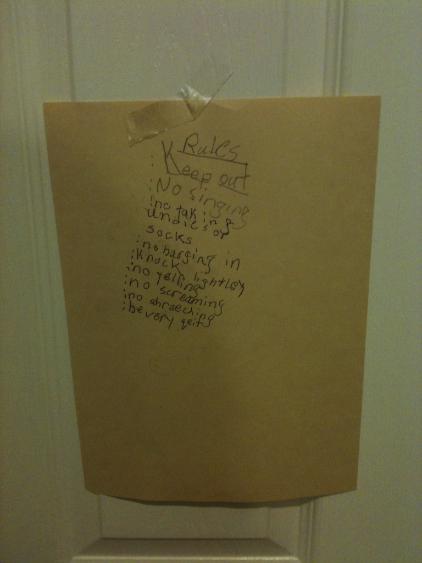 Rules
: Keep out
: No singing
: no taking
undies or
socks
: no barging in
: Knock lightley
: no yelling
: no screaming
: no shreeching
: be very qeit